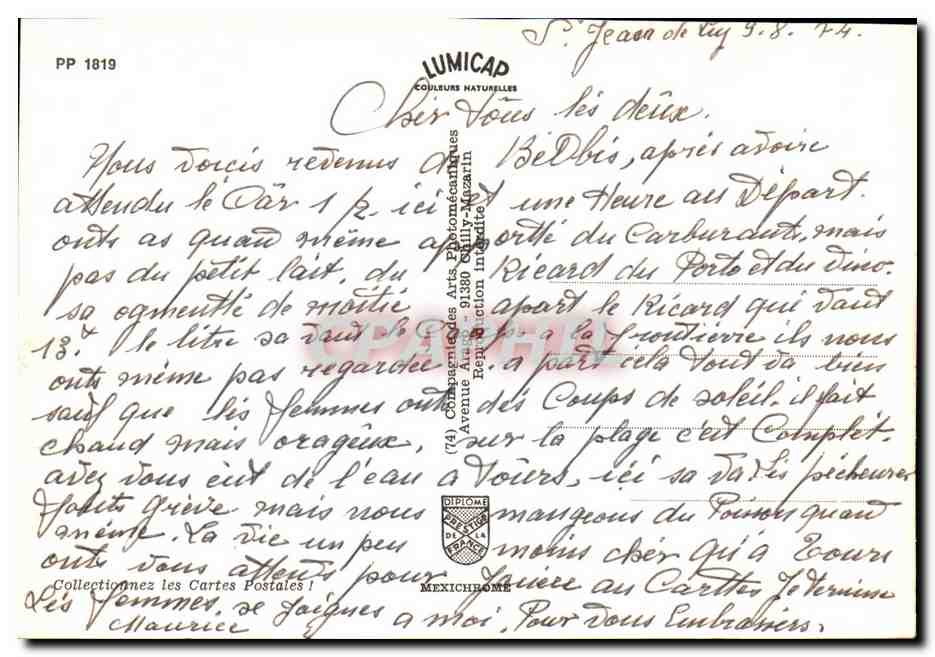 St Jean de Luz 9.8.74.
PP 1819
LUMICAP
COULEURS NATURELLES
Cher Tous les deux.
Nous voicis revenus de BéObis, après avoire
attendu le Câr 1/2 ici et une Heure au Départ.
onts as quand même apportté du Carburants, mais
pas du petit lait, du Ricard du Porto et du Vino.
sa ogmentté de moitié apart le Ricard qui vaut
13f le litre sa vaut le a la frontière ils nous
onts même pas regardée. a part cela tout va bien
sauf que les femmes onts des Coups de soleil. il fait
chaud mais orageux, sur la plage c'est Complèt.
avez vous eut de l'eau a Tours, ici sa va Les pécheures
fonts Grève mais nous mangeons du Poisson quand
même. La vie un peu moins chér qu'a Tours
onts vous attents pour faire au Carttes Je termine
Les femmes, se joignes a moi, Pour vous Embrassers.
Maurice
(74) Compagnie des Arts Photomécaniques
Avenue Arago - 91380 Chilly-Mazarin
Reproduction interdite
CPAPHIL
DIPLOME
PRESTIGE
DE LA
FRANCE
MEXICHROME
Collectionnez les Cartes Postales !